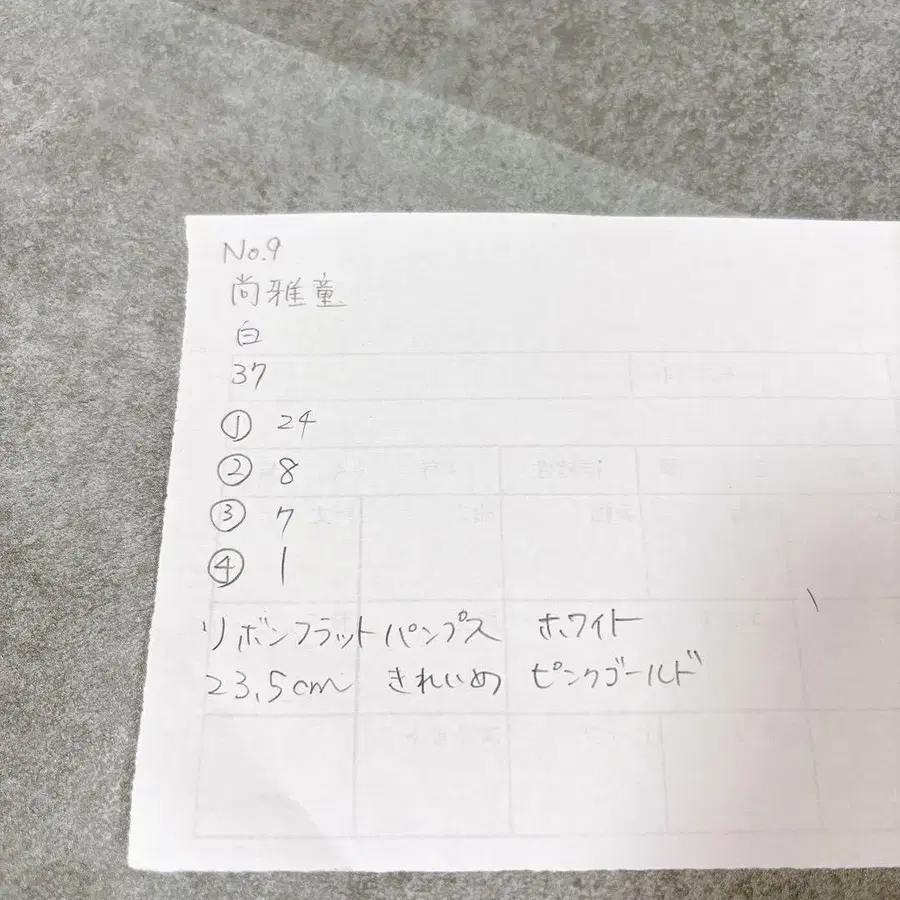 No.9
尚雅童
白
37
① 24
② 8
③ 7
④ 1
リボンフラットパンプス ホワイト
23.5cm きれいめ ピンクゴールド